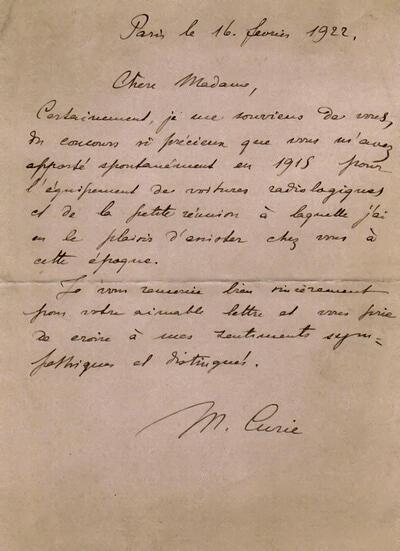 Paris le 16 fevrier 1922.
Chere Madame,
Certainement, je me souviens de vous,
du concours si précieux que vous m'avez
apporté spontanément en 1915 pour
l'équipement de voitures radiologiques
et de la petite réunion à laquelle j'ai
eu le plaisir d'assister chez vous à
cette époque.
Je vous remercie bien sincèrement
pour votre aimable lettre et vous prie
de croire à mes sentiments sym=
pathiques et distingués.
M. Curie